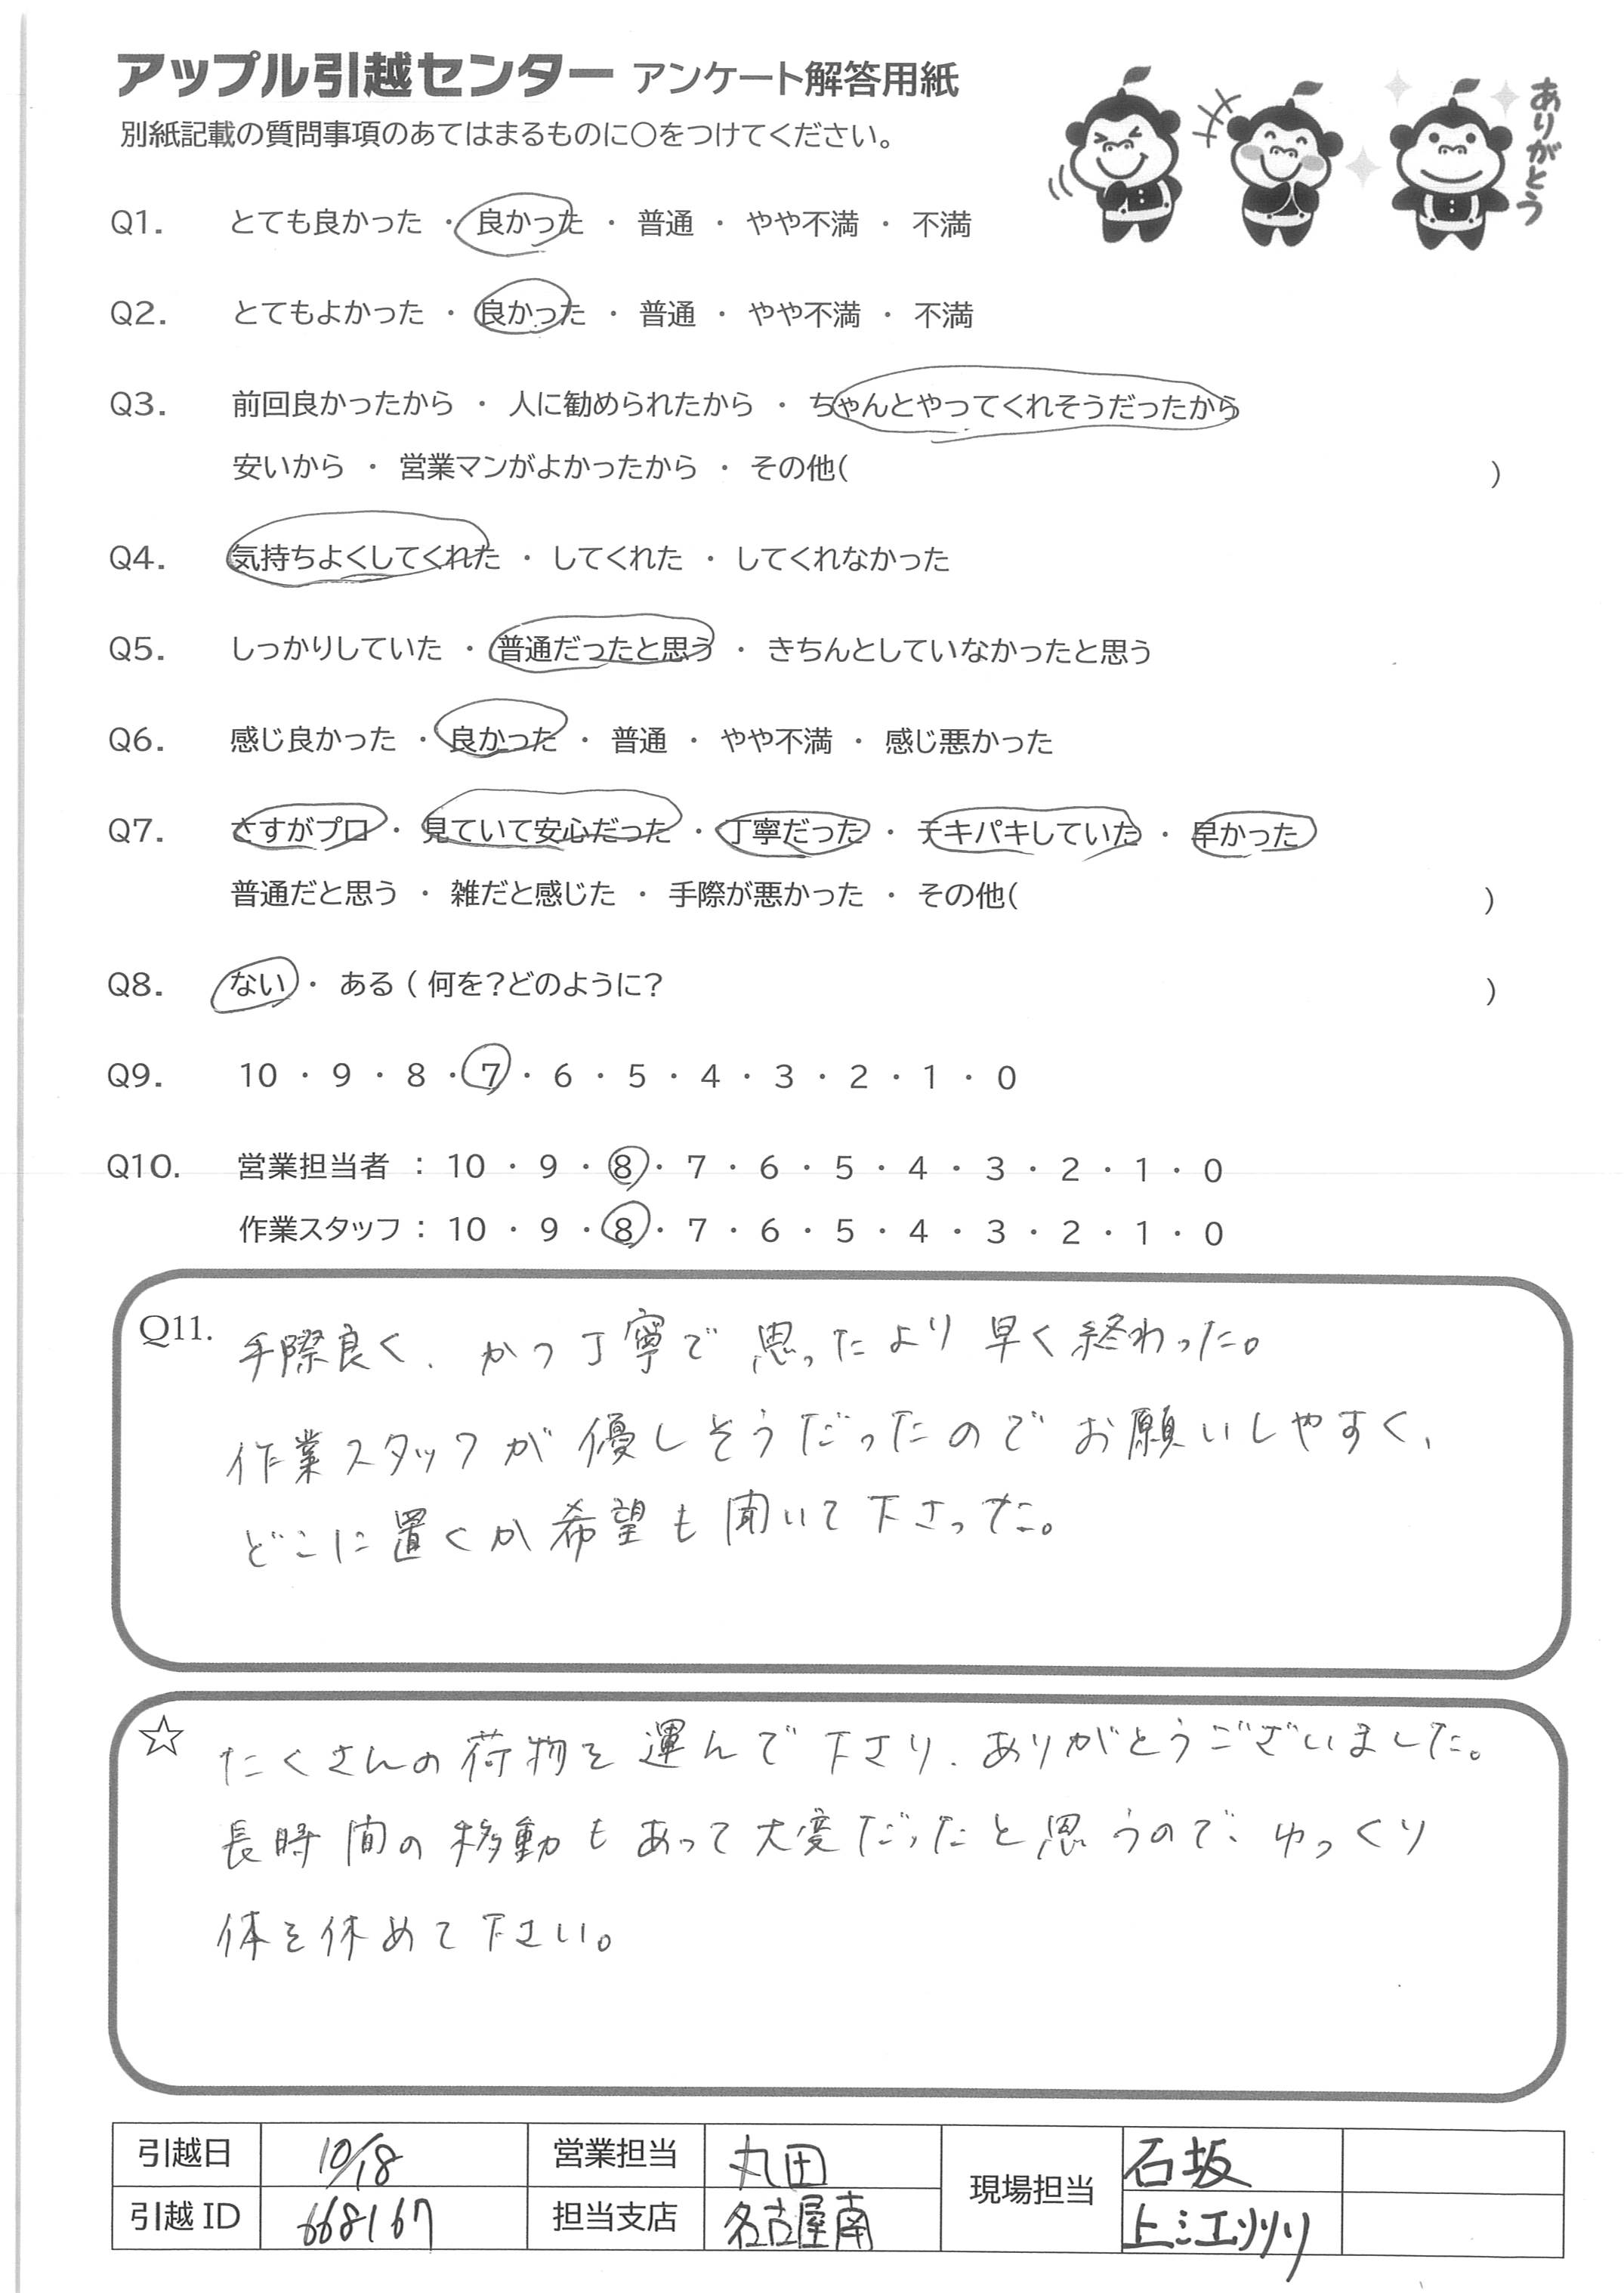 アップル引越センター アンケート解答用紙
別紙記載の質問事項のあてはまるものに○をつけてください。
ありがとう
Q1. とても良かった ・ 良かった ・ 普通 ・ やや不満 ・ 不満
Q2. とてもよかった ・ 良かった ・ 普通 ・ やや不満 ・ 不満
Q3. 前回良かったから ・ 人に勧められたから ・ ちゃんとやってくれそうだったから
安いから ・ 営業マンがよかったから ・ その他( )
Q4. 気持ちよくしてくれた ・ してくれた ・ してくれなかった
Q5. しっかりしていた ・ 普通だったと思う ・ きちんとしていなかったと思う
Q6. 感じ良かった ・ 良かった ・ 普通 ・ やや不満 ・ 感じ悪かった
Q7. さすがプロ ・ 見ていて安心だった ・ 丁寧だった ・ テキパキしていた ・ 早かった
普通だと思う ・ 雑だと感じた ・ 手際が悪かった ・ その他( )
Q8. ない ・ ある ( 何を?どのように? )
Q9. 10 ・ 9 ・ 8 ・ 7 ・ 6 ・ 5 ・ 4 ・ 3 ・ 2 ・ 1 ・ 0
Q10. 営業担当者 : 10 ・ 9 ・ 8 ・ 7 ・ 6 ・ 5 ・ 4 ・ 3 ・ 2 ・ 1 ・ 0
作業スタッフ : 10 ・ 9 ・ 8 ・ 7 ・ 6 ・ 5 ・ 4 ・ 3 ・ 2 ・ 1 ・ 0
Q11. 手際良く、かつ丁寧で思ったより早く終わった。
作業スタッフが優しそうだったのでお願いしやすく、
どこに置くか希望も聞いて下さった。
☆ たくさんの荷物を運んで下さり、ありがとうございました。
長時間の移動もあって大変だったと思うので、ゆっくり
体を休めて下さい。
引越日 10/18 営業担当 丸田 現場担当 石坂
引越ID 668167 担当支店 名古屋南